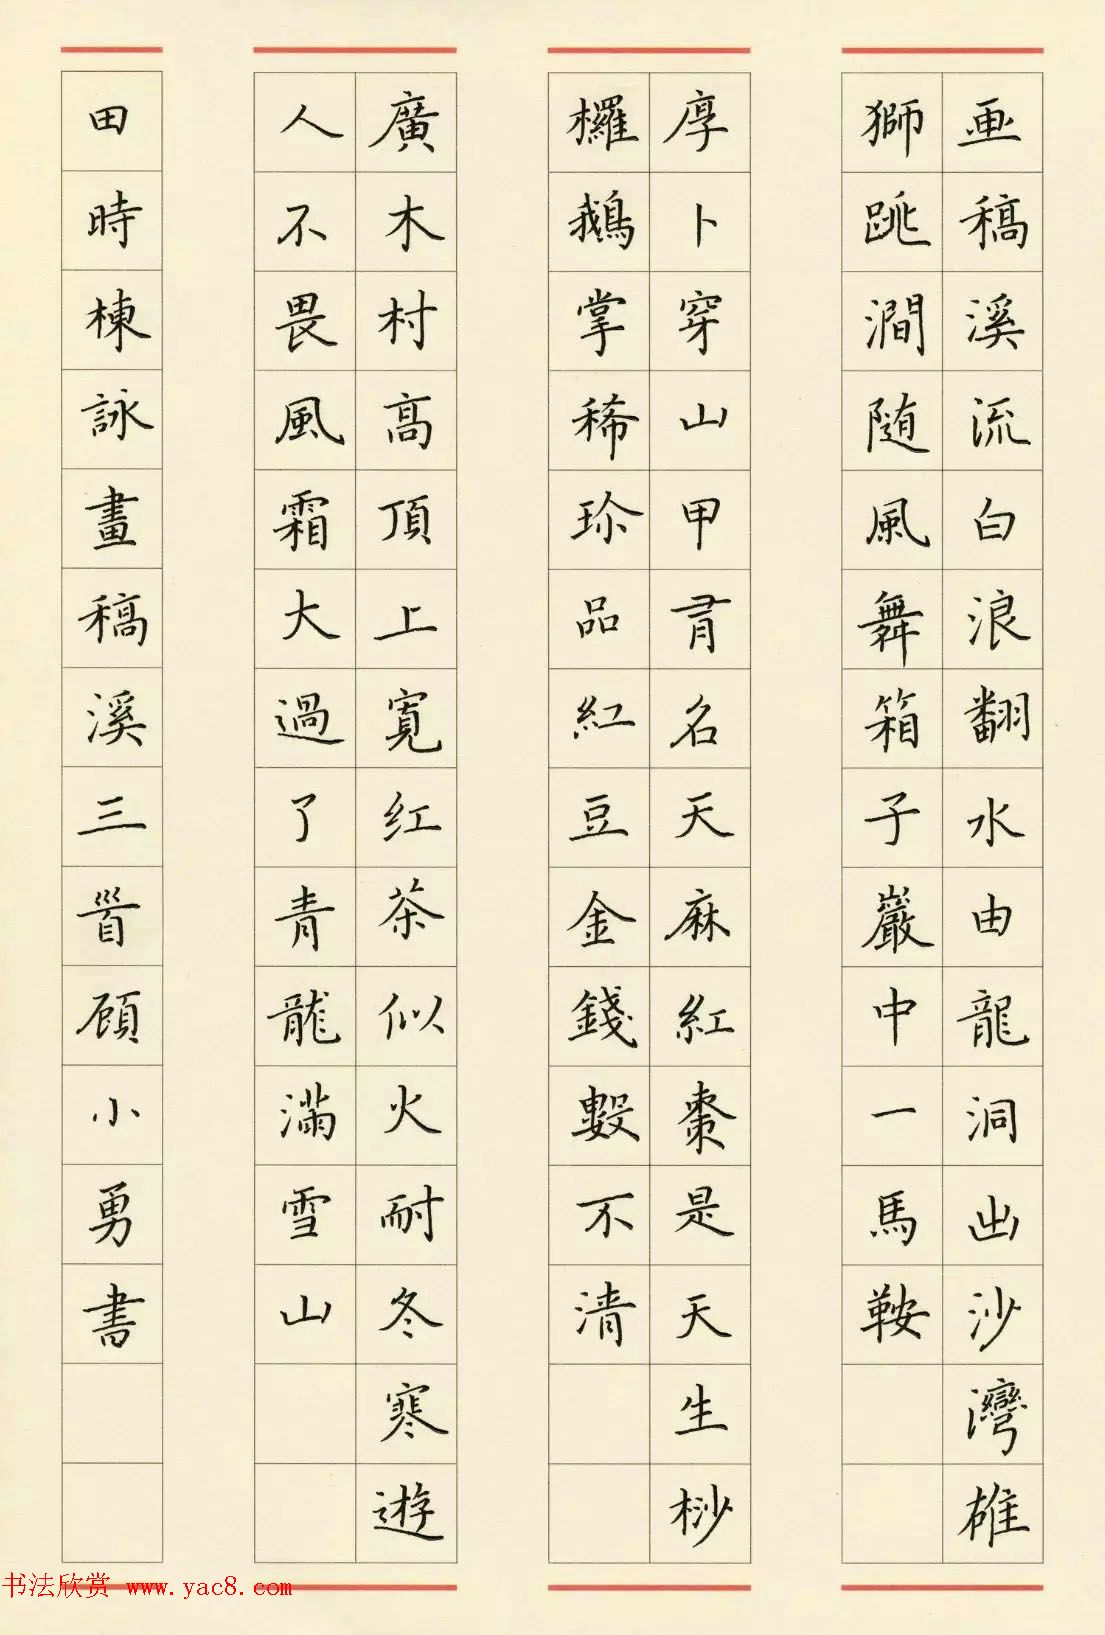 画稿溪流白浪翻水由龍洞出沙灣雄
獅跳澗随風舞箱子巖中一馬鞍
厚卜穿山甲有名天麻紅棗是天生桫
欏鵝掌稀珍品紅豆金錢數不清
廣木村高頂上寬红茶似火耐冬寒遊
人不畏風霜大過了青龍滿雪山
田時棟詠畫稿溪三首顧小勇書
书法欣赏 www.yac8.com